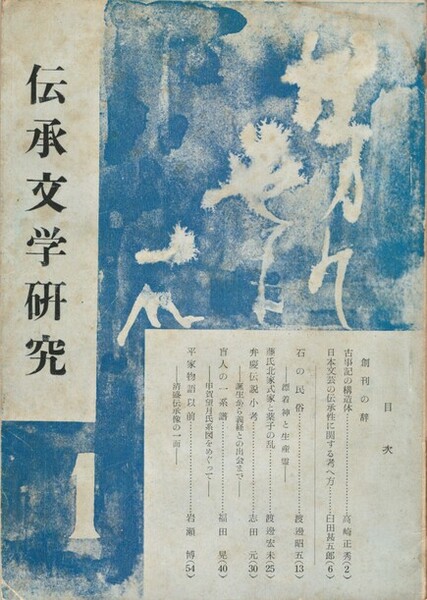 伝承文学研究
1
目次
創刊の辞
古事記の構造体……………高崎正秀(2)
日本文芸の伝承性に関する考へ方……臼田甚五郎(6)
石の民俗……………渡邊昭五(13)
——漂着神と生産霊——
藤氏北家式家と薬子の乱……渡邊宏未(25)
弁慶伝説小考……………志田元(30)
——誕生から義経との出会まで——
盲人の一系譜……………福田晃(40)
——甲賀望月氏系図をめぐって——
平家物語以前……………岩瀬博(54)
——清盛伝承像の一面——